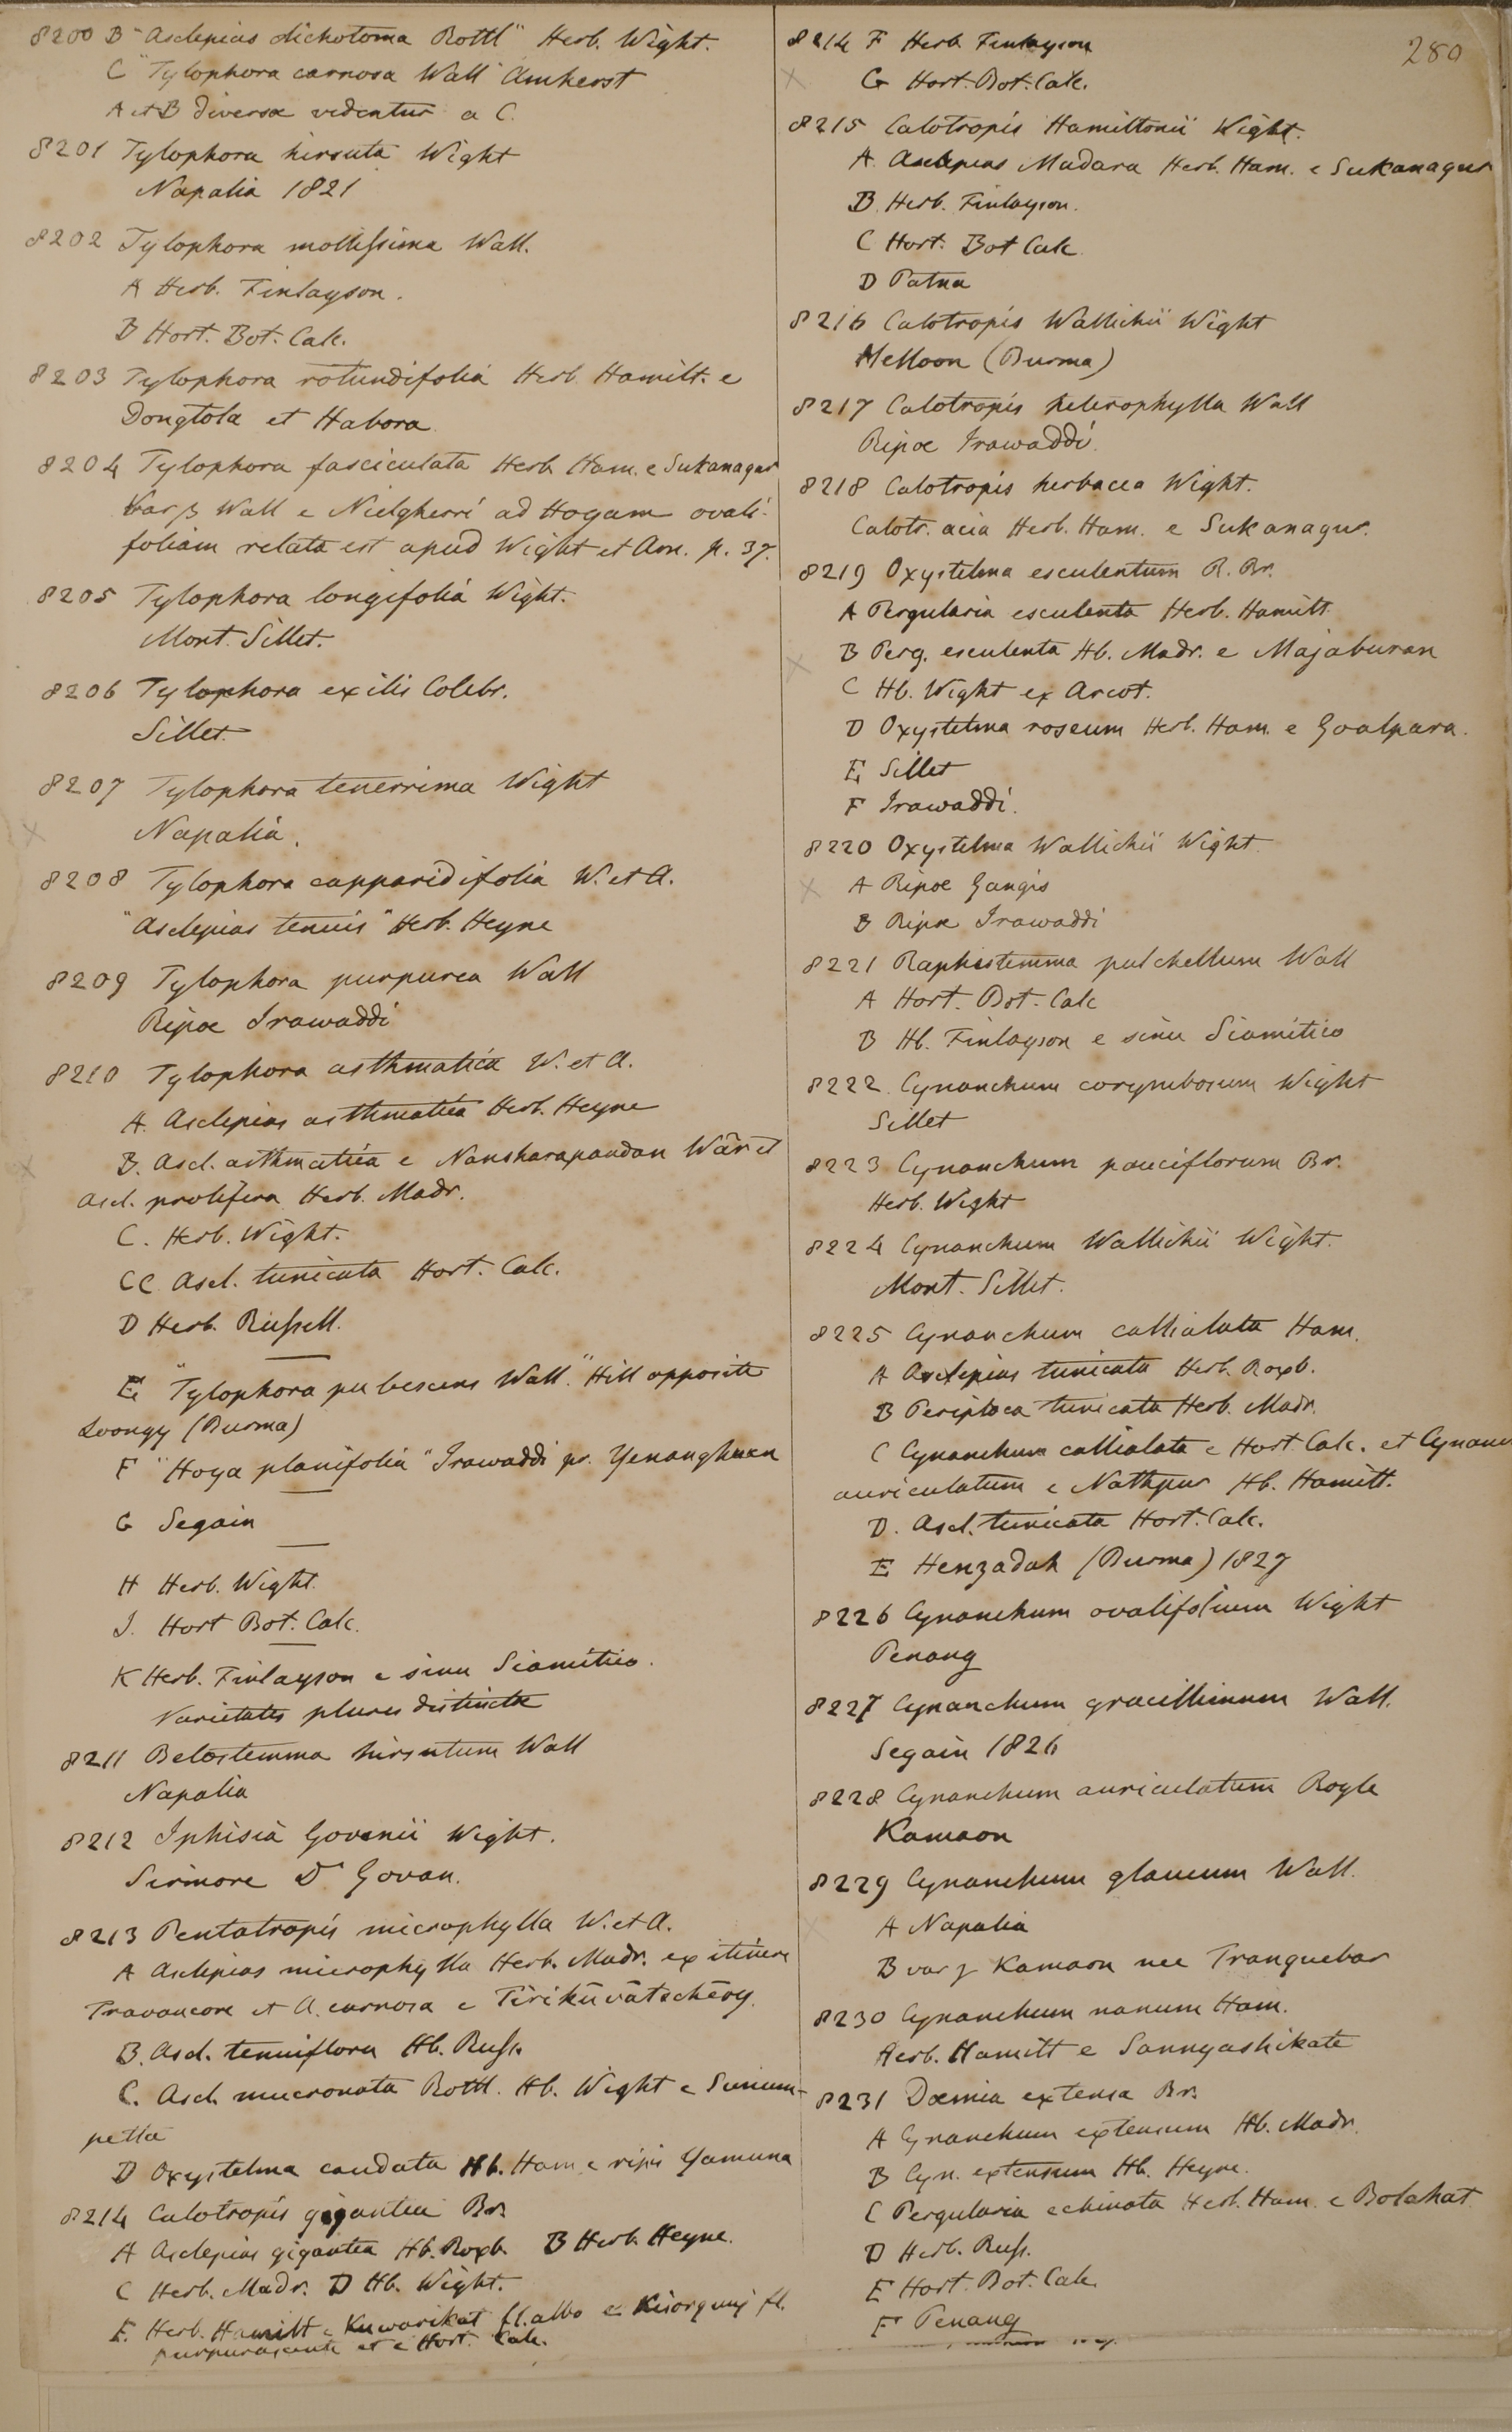 8200 B "Asclepias dichotoma Rottl" Herb. Wight.
C "Tylophora carnosa Wall" Amherst
A et B diversæ videntur a C.
8201 Tylophora hirsuta Wight
Napalia 1821
8202 Tylophora mollissima Wall.
A Herb. Finlayson.
B Hort. Bot. Calc.
8203 Tylophora rotundifolia Herb. Hamilt. e
Dongtola et Habora
8204 Tylophora fasciculata Herb. Ham. e Sukanagur
Var β Wall e Nielgherri ad Hoyam ovali-
foliam relata est apud Wight et Arn. p. 37.
8205 Tylophora longifolia Wight.
Mont. Sillet.
8206 Tylophora exilis Colebr.
Sillet.
8207 Tylophora tenerrima Wight
Napalia.
8208 Tylophora capparidifolia W. et A.
"Asclepias tenuis" Herb. Heyne
8209 Tylophora purpurea Wall
Ripæ Irawaddi
8210 Tylophora asthmatica W. et A.
A. Asclepias asthmatica Herb. Heyne
B. Ascl. asthmatica e Nansharapaudan Wār et
Ascl. prolifera Herb. Madr.
C. Herb. Wight.
CC Ascl. tunicata Hort. Calc.
D Herb. Russell.
E "Tylophora pubescens Wall." Hill opposite
Loongy (Burma)
F "Hoya planifolia" Irawaddi pr. Yenanghuen
G Segain
H Herb. Wight.
I. Hort Bot. Calc.
K Herb. Finlayson e sinu Siamitico.
Varietates plures distinctæ
8211 Belostemma hirsutum Wall
Napalia
8212 Iphisia Govanii Wight.
Sirmore Dr Govan.
8213 Pentatropis microphylla W. et A.
A Asclepias microphylla Herb. Madr. ex itinere
Travancore et A. carnosa e Tirikūvātschēry.
B. Ascl. tenuiflora Hb. Russ.
C. Ascl. mucronata Rottl. Hb. Wight e Surium-
petta
D Oxystelma caudata Hb. Ham e ripis Yamuna
8214 Calotropis gigantea Br.
A Asclepias gigantea Hb. Roxb. B Herb. Heyne.
C Herb. Madr. D Hb. Wight.
E. Herb. Hamilt e Kuwarikat fl. albo e Kisorgunj fl.
purpurascente et e Hort. Calc.
280
8214 F Herb Finlayson
G Hort. Bot. Calc.
8215 Calotropis Hamiltonii Wight.
A. Asclepias Madara Herb. Ham. e Sukanagur
B. Herb. Finlayson.
C Hort. Bot Calc
D Patna
8216 Calotropis Wallichii Wight
Melloon (Burma)
8217 Calotropis heterophylla Wall
Ripæ Irawaddi.
8218 Calotropis herbacea Wight.
Calotr. acia Herb. Ham. e Sukanagur.
8219 Oxystelma esculentum R. Br.
A Pergularia esculenta Herb. Hamilt.
B Perg. esculenta Hb. Madr. e Majaburan
C Hb. Wight ex Arcot.
D Oxystelma roseum Herb. Ham. e Goalpara.
E Sillet
F Irawaddi.
8220 Oxystelma Wallichii Wight.
A Ripæ Gangis
B Ripæ Irawaddi
8221 Raphistemma pulchellum Wall
A Hort. Bot. Calc
B Hb. Finlayson e sinu Siamitico
8222. Cynanchum corymbosum Wight
Sillet
8223 Cynanchum pauciflorum Br.
Herb. Wight
8224 Cynanchum Wallichii Wight.
Mont. Sillet.
8225 Cynanchum callialata Ham.
A Asclepias tunicata Herb. Roxb.
B Periploca tunicata Herb. Madr.
C Cynanchum callialata e Hort. Calc. et Cynanc
auriculatum e Nathpur Hb. Hamilt.
D. Ascl. tunicata Hort. Calc.
E Henzadah (Burma) 1827
8226 Cynanchum ovalifolium Wight
Penang
8227 Cynanchum gracillimum Wall.
Segain 1826
8228 Cynanchum auriculatum Royle
Kamaon
8229 Cynanchum glaucum Wall.
A Napalia
B var γ Kamaon nec Tranquebar
8230 Cynanchum nanum Ham.
Herb. Hamilt e Sannyashikata
8231 Dæmia extensa Br.
A Cynanchum extensum Hb. Madr.
B Cyn. extensum Hb. Heyne.
C Pergularia echinata Herb. Ham. e Bolahat
D Herb. Russ.
E Hort. Bot. Calc.
F Penang